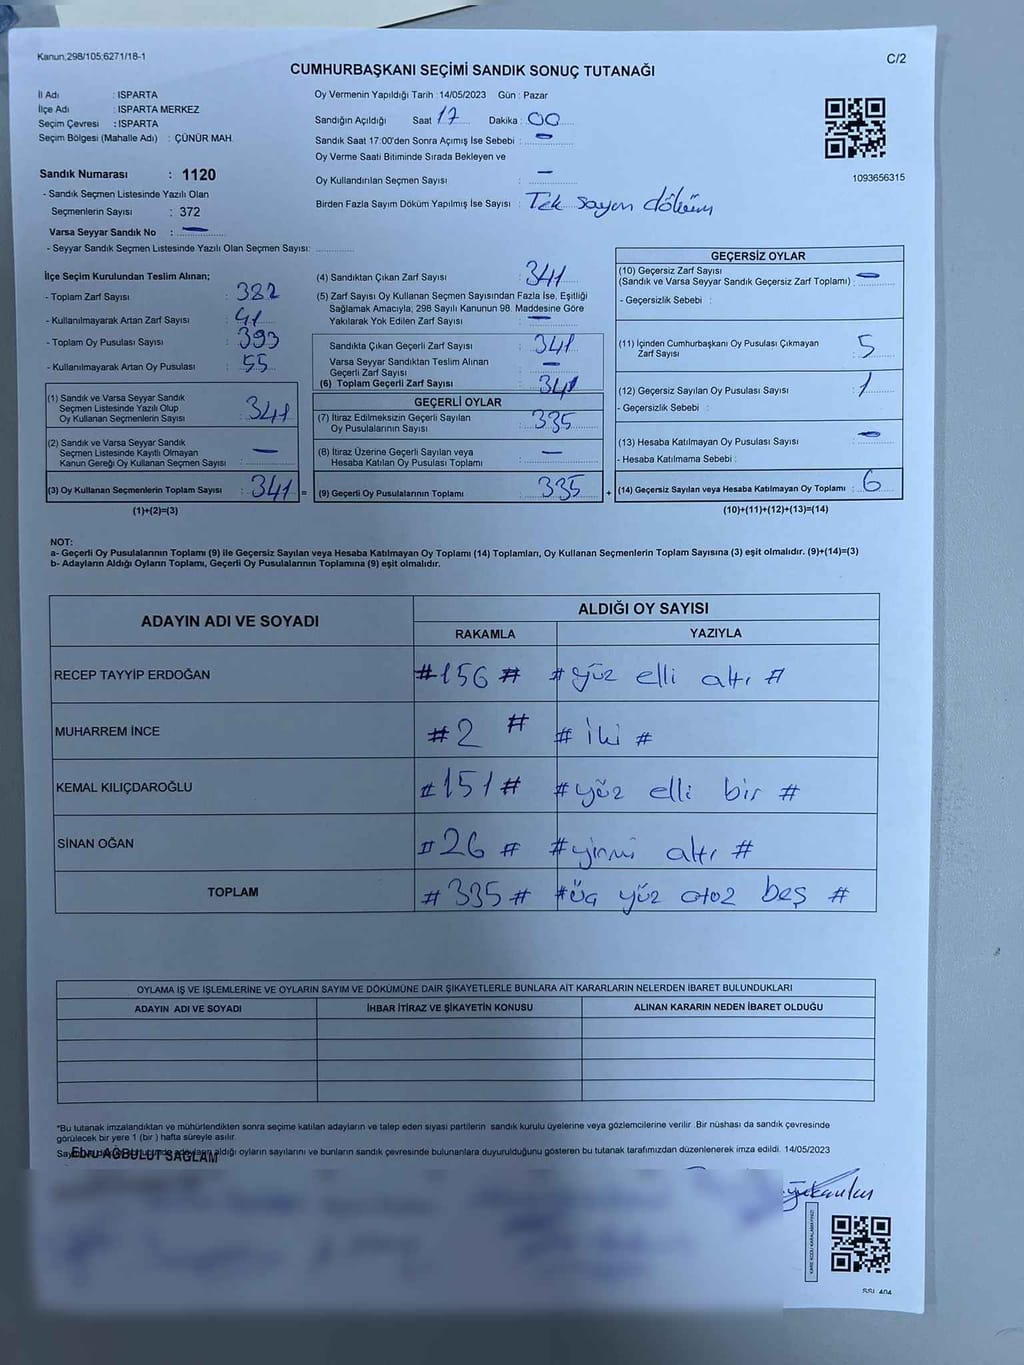 Kanun;298/105;6271/18-1
C/2
CUMHURBAŞKANI SEÇİMİ SANDIK SONUÇ TUTANAĞI
İl Adı : ISPARTA
İlçe Adı : ISPARTA MERKEZ
Seçim Çevresi : ISPARTA
Seçim Bölgesi (Mahalle Adı) : ÇÜNÜR MAH.
Sandık Numarası : 1120
- Sandık Seçmen Listesinde Yazılı Olan
Seçmenlerin Sayısı : 372
Varsa Seyyar Sandık No : —
- Seyyar Sandık Seçmen Listesinde Yazılı Olan Seçmen Sayısı:
Oy Vermenin Yapıldığı Tarih :14/05/2023 Gün : Pazar
Sandığın Açıldığı Saat 17 Dakika : 00
Sandık Saat 17:00'den Sonra Açımış İse Sebebi : —
Oy Verme Saati Bitiminde Sırada Bekleyen ve
Oy Kullandırılan Seçmen Sayısı : —
Birden Fazla Sayım Döküm Yapılmış İse Sayısı : Tek sayım döküm
1093656315
İlçe Seçim Kurulundan Teslim Alınan;
- Toplam Zarf Sayısı : 382
- Kullanılmayarak Artan Zarf Sayısı : 41
- Toplam Oy Pusulası Sayısı : 393
- Kullanılmayarak Artan Oy Pusulası : 55
(1) Sandık ve Varsa Seyyar Sandık
Seçmen Listesinde Yazılı Olup
Oy Kullanan Seçmenlerin Sayısı : 341
(2) Sandık ve Varsa Seyyar Sandık
Seçmen Listesinde Kayıtlı Olmayan
Kanun Gereği Oy Kullanan Seçmen Sayısı : —
(3) Oy Kullanan Seçmenlerin Toplam Sayısı : 341 =
(1)+(2)=(3)
(4) Sandıktan Çıkan Zarf Sayısı : 341
(5) Zarf Sayısı Oy Kullanan Seçmen Sayısından Fazla İse, Eşitliği
Sağlamak Amacıyla, 298 Sayılı Kanunun 98. Maddesine Göre
Yakılarak Yok Edilen Zarf Sayısı : —
Sandıkta Çıkan Geçerli Zarf Sayısı : 341
Varsa Seyyar Sandıktan Teslim Alınan
Geçerli Zarf Sayısı : —
(6) Toplam Geçerli Zarf Sayısı : 341
GEÇERLİ OYLAR
(7) İtiraz Edilmeksizin Geçerli Sayılan
Oy Pusulalarının Sayısı : 335
(8) İtiraz Üzerine Geçerli Sayılan veya
Hesaba Katılan Oy Pusulası Toplamı : —
(9) Geçerli Oy Pusulalarının Toplamı : 335 +
GEÇERSİZ OYLAR
(10) Geçersiz Zarf Sayısı
(Sandık ve Varsa Seyyar Sandık Geçersiz Zarf Toplamı) : —
- Geçersizlik Sebebi :
(11) İçinden Cumhurbaşkanı Oy Pusulası Çıkmayan
Zarf Sayısı : 5
(12) Geçersiz Sayılan Oy Pusulası Sayısı : 1
- Geçersizlik Sebebi :
(13) Hesaba Katılmayan Oy Pusulası Sayısı : —
- Hesaba Katılmama Sebebi :
(14) Geçersiz Sayılan veya Hesaba Katılmayan Oy Toplamı : 6
(10)+(11)+(12)+(13)=(14)
NOT:
a- Geçerli Oy Pusulalarının Toplamı (9) ile Geçersiz Sayılan veya Hesaba Katılmayan Oy Toplamı (14) Toplamları, Oy Kullanan Seçmenlerin Toplam Sayısına (3) eşit olmalıdır. (9)+(14)=(3)
b- Adayların Aldığı Oyların Toplamı, Geçerli Oy Pusulalarının Toplamına (9) eşit olmalıdır.
ADAYIN ADI VE SOYADI ALDIĞI OY SAYISI
RAKAMLA YAZIYLA
RECEP TAYYİP ERDOĞAN #156# #yüz elli altı#
MUHARREM İNCE #2# #iki#
KEMAL KILIÇDAROĞLU #151# #yüz elli bir#
SİNAN OĞAN #26# #yirmi altı#
TOPLAM #335# #üç yüz otuz beş#
OYLAMA İŞ VE İŞLEMLERİNE VE OYLARIN SAYIM VE DÖKÜMÜNE DAİR ŞİKAYETLERLE BUNLARA AİT KARARLARIN NELERDEN İBARET BULUNDUKLARI
ADAYIN ADI VE SOYADI İHBAR İTİRAZ VE ŞİKAYETİN KONUSU ALINAN KARARIN NEDEN İBARET OLDUĞU
*Bu tutanak imzalandıktan ve mühürlendikten sonra seçime katılan adayların ve talep eden siyasi partilerin sandık kurulu üyelerine veya gözlemcilerine verilir .Bir nüshası da sandık çevresinde
görülecek bir yere 1 (bir ) hafta süreyle asılır.
adayların aldığı oyların sayılarını ve bunların sandık çevresinde bulunanlara duyurulduğunu gösteren bu tutanak tarafımızdan düzenlenerek imza edildi. 14/05/2023
Ebru AĞBULUT SAĞLAM